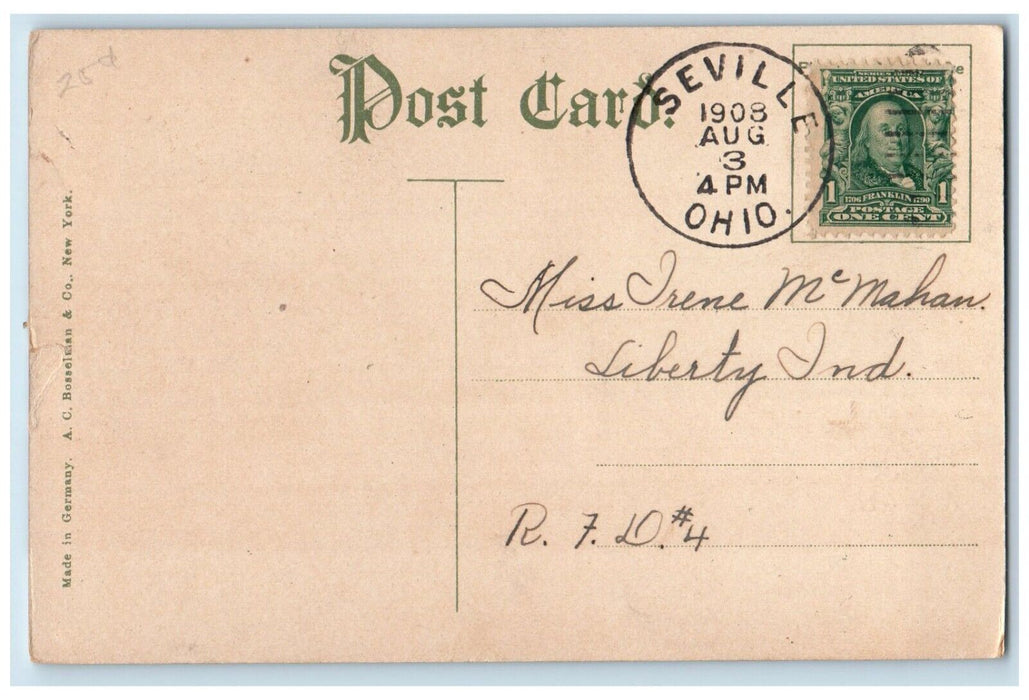 25¢
Post Card.
SEVILLE
1908
AUG
3
4 PM
OHIO.
UNITED STATES OF
AMERICA
1 1706 FRANKLIN 1790 1
POSTAGE
ONE CENT
Miss Irene McMahan.
Liberty Ind.
R. F. D. #4
Made in Germany. A. C. Bosselman & Co., New York.